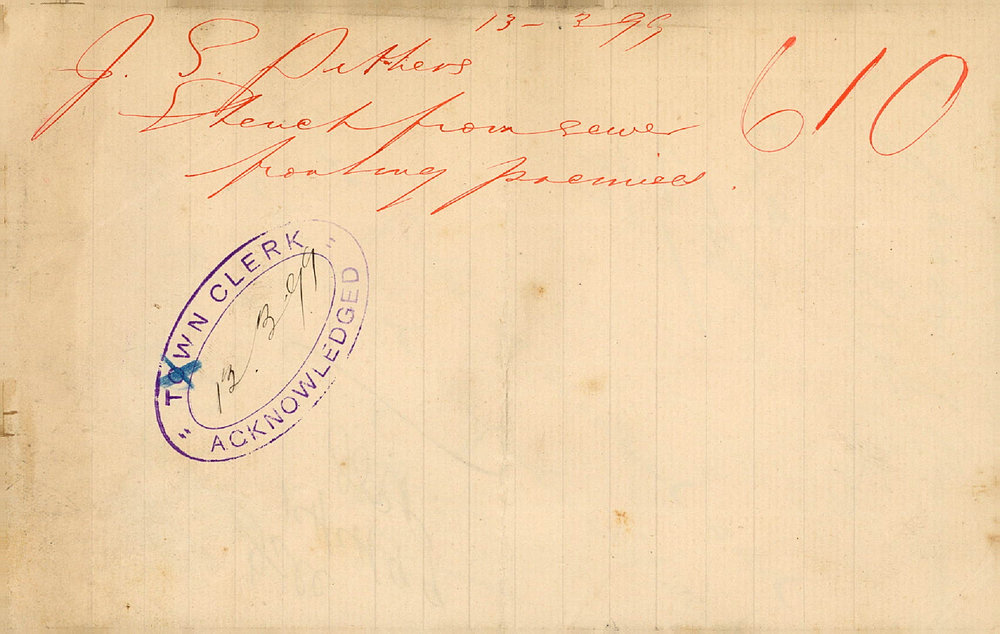 13-3 99
J. S. Pithers
610
Stench from sewer
fronting premises.
"TOWN CLERK"
13.3.99
ACKNOWLEDGED